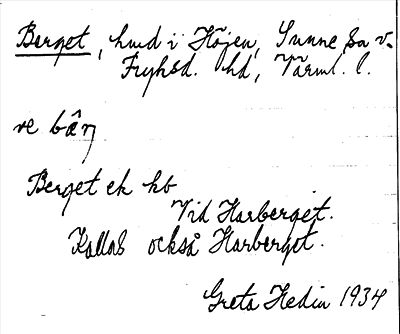 Berget, hmd i Höjen, Sunne sn v.
Fryksd. hd, Värml. l.
ve bärj
Berget ek kb
Vid Harberget.
Kallas också Harberget.
Greta Hedin 1934